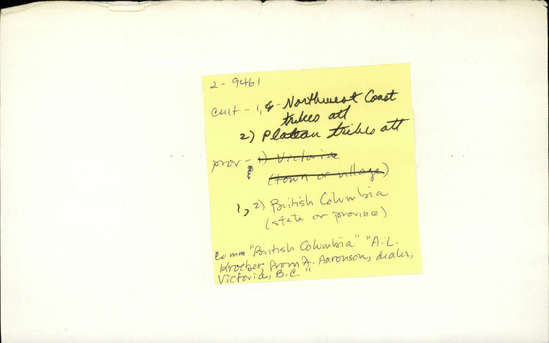 2-9461
cult - 1, 4 - Northwest Coast
tribes att
2) Plateau tribes att
prov - 1) Victoria
(town or village)
1, 2) British Columbia
(state or province)
Comm "British Columbia" "A.L.
Kroeber, from A. Aaronson, dealer,
Victoria, B.C."